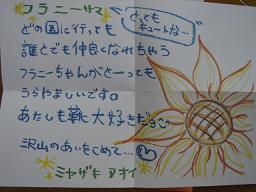 フラニーサマ
とっても
キュートな…
どの国に行っても
誰とでも仲良くなれちゃう
フラニーちゃんがとーっても
うらやましいです。
あたしも靴大好きだョ
沢山のあいをこめて…
ミヤザキ アオイ